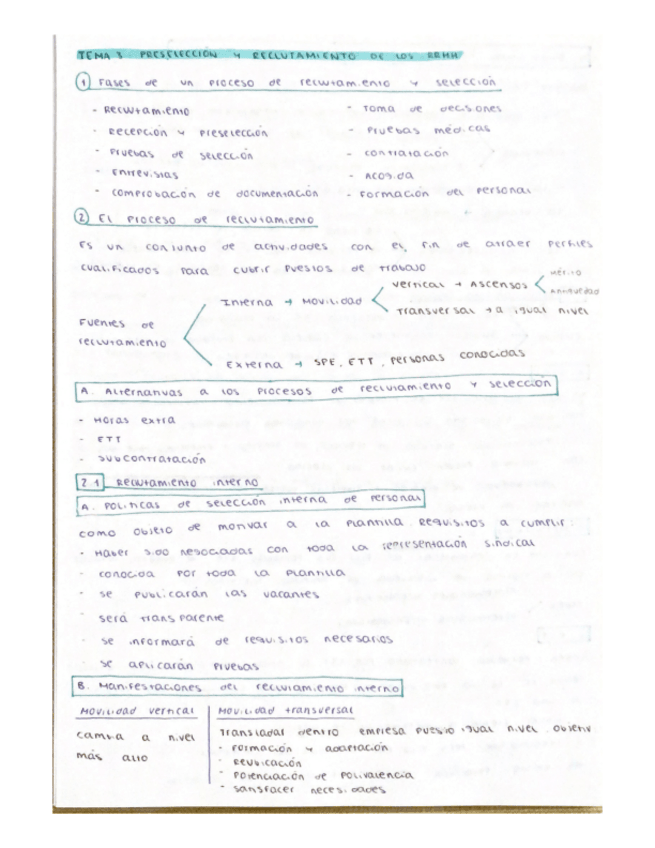 TEMA 3. PRESELECCIÓN Y RECLUTAMIENTO DE LOS RRHH
1 Fases de un proceso de reclutamiento y selección
- Reclutamiento
- Recepción y preselección
- Pruebas de selección
- Entrevistas
- Comprobación de documentación
- Toma de decisiones
- Pruebas médicas
- Contratación
- Acogida
- Formación del personal
2 El proceso de reclutamiento
Es un conjunto de actividades con el fin de atraer perfiles
cualificados para cubrir puestos de trabajo
Fuentes de
reclutamiento
Interna → Movilidad
Vertical → Ascensos
mérito
antigüedad
Transversal → a igual nivel
Externa → SPE, ETT, personas conocidas
A. Alternativas a los procesos de reclutamiento y selección
- Horas extra
- ETT
- Subcontratación
2.1 Reclutamiento interno
A. Políticas de selección interna de personal
Como objeto de motivar a la plantilla. Requisitos a cumplir:
- Haber sido negociadas con toda la representación sindical
- conocida por toda la plantilla
- se publicarán las vacantes
- será transparente
- se informará de requisitos necesarios
- se aplicarán pruebas
B. Manifestaciones del reclutamiento interno
Movilidad vertical
Cambia a nivel
más alto
Movilidad transversal
Trasladar dentro empresa puesto igual nivel. Objetiv
- Formación y adaptación
- Reubicación
- Potenciación de polivalencia
- Satisfacer necesidades